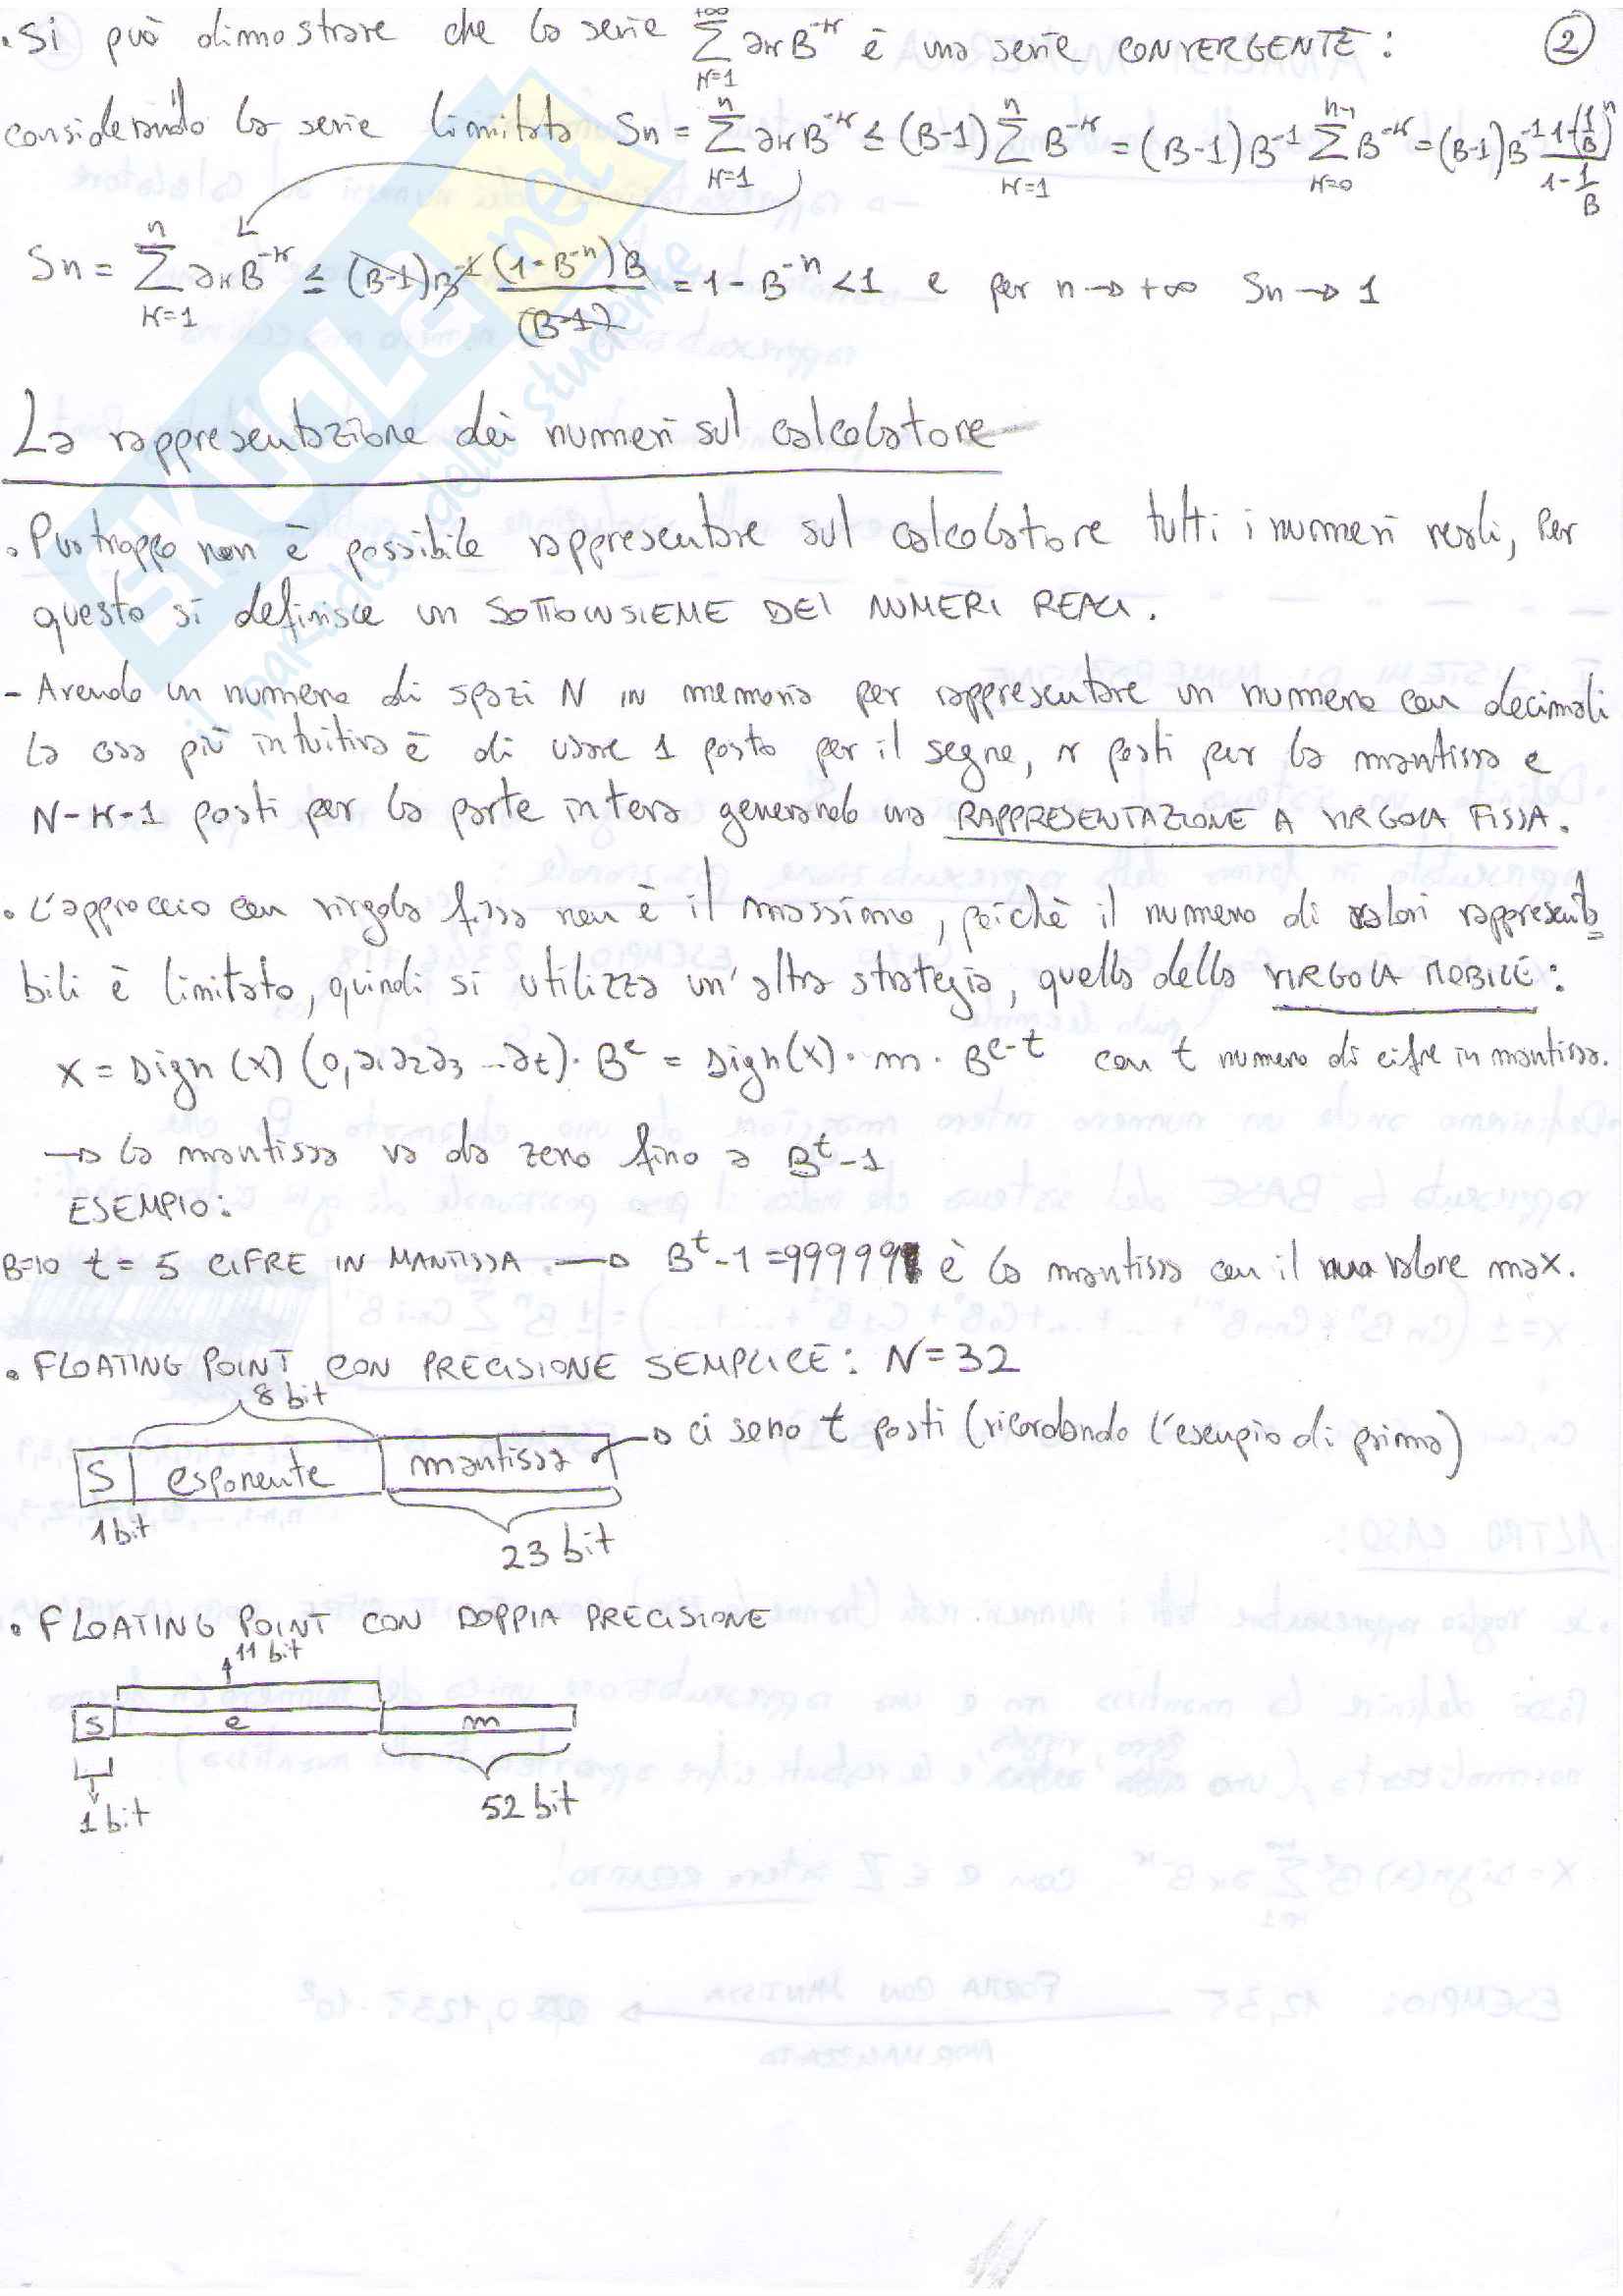 • Si può dimostrare che la serie +∞ Σ k=1 a_k B^-k è una serie CONVERGENTE: ②
considerando la serie limitata Sn = n Σ k=1 a_k B^-k ≤ (B-1) n Σ k=1 B^-k = (B-1)B^-1 n-1 Σ k=0 B^-k = (B-1)B^-1 (1-(1/B)^n)/(1-1/B)
Sn = n Σ k=1 a_k B^-k ≤ (B-1)B^-1 (1-B^-n)B/(B-1) = 1-B^-n < 1 e per n→+∞ Sn→1
La rappresentazione dei numeri sul calcolatore
• Purtroppo non è possibile rappresentare sul calcolatore tutti i numeri reali, per
questo si definisce un SOTTOINSIEME DEI NUMERI REALI.
- Avendo un numero di spazi N in memoria per rappresentare un numero con decimali
la cosa più intuitiva è di usare 1 posto per il segno, k posti per la mantissa e
N-k-1 posti per la parte intera generando una RAPPRESENTAZIONE A VIRGOLA FISSA.
• L'approccio con virgola fissa non è il massimo, poichè il numero di valori rappresenta
bili è limitato, quindi si utilizza un'altra strategia, quella della VIRGOLA MOBILE:
x = sign(x)(0,a1a2a3...at)·B^e = sign(x)·m·B^e-t con t numero di cifre in mantissa.
→ la mantissa va da zero fino a B^t-1
ESEMPIO:
B=10 t=5 CIFRE IN MANTISSA → B^t-1=99999 è la mantissa con il valore max.
• FLOATING POINT CON PRECISIONE SEMPLICE: N=32
8 bit
S esponente mantissa → ci sono t posti (ricordando l'esempio di prima)
1 bit 23 bit
• FLOATING POINT CON DOPPIA PRECISIONE
11 bit
S e m
1 bit 52 bit
SKUOLA.net
il paradiso dello studente